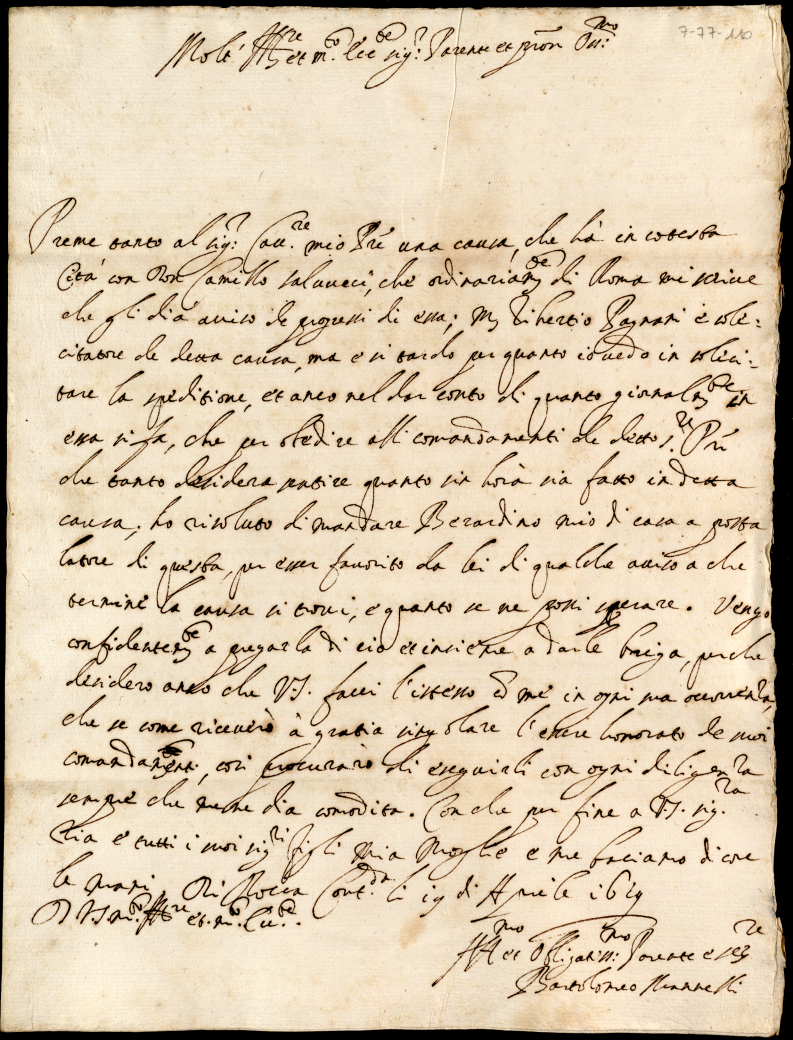 7-77-110
Molt' Ill.re et m.to Ecc.te sig.r Parente et pron Oss.mo
Preme tanto al sig.r Cau.re mio Prē una causa, che hà in cotesta
Città con Don Camillo saluucci, che ordinariam.te di Roma mi scriue
che gli dia auiso de progressi di essa; M. Tibertio Pagnani è soli-
citatore de detta causa, ma è si tardo per quanto io uedo in solici-
tare la speditione, et anco nel dar conto di quanto giornalm.te in
essa si fa, che per obedire alli comandamenti de detto s.re Prē
che tanto desidera sentire quanto sin horà sia fatto in detta
causa; ho risoluto di mandare Berardino mio di casa a posta
latore di questa, per esser fauorito da lei di qualche auiso a che
termine la causa si troui, e quanto se ne possi sperare. Vengo
confidentem.te a pregarla di ciò et insieme a darle briga, perche
desidero anco che V.S. facci l'istesso con me in ogni sua occorrenza
che se come riceuerò à gratia singolare l'essere honorato de suoi
comandam.ti, così procurarò di eseguirli con ogni diligenza
sempre che me ne dia comodita. Con che per fine a V.S. sig.ra
Zia e tutti i suoi sig.ri figli Mia Moglie e me baciamo di core
le mani. Di Rocca Cont.da li 19 di Aprile 1619
D V.S. m.to Ill.re et m.to Ecc.te
Aff.mo et Obligatiss.mo Parente e ser.re
Bartolomeo